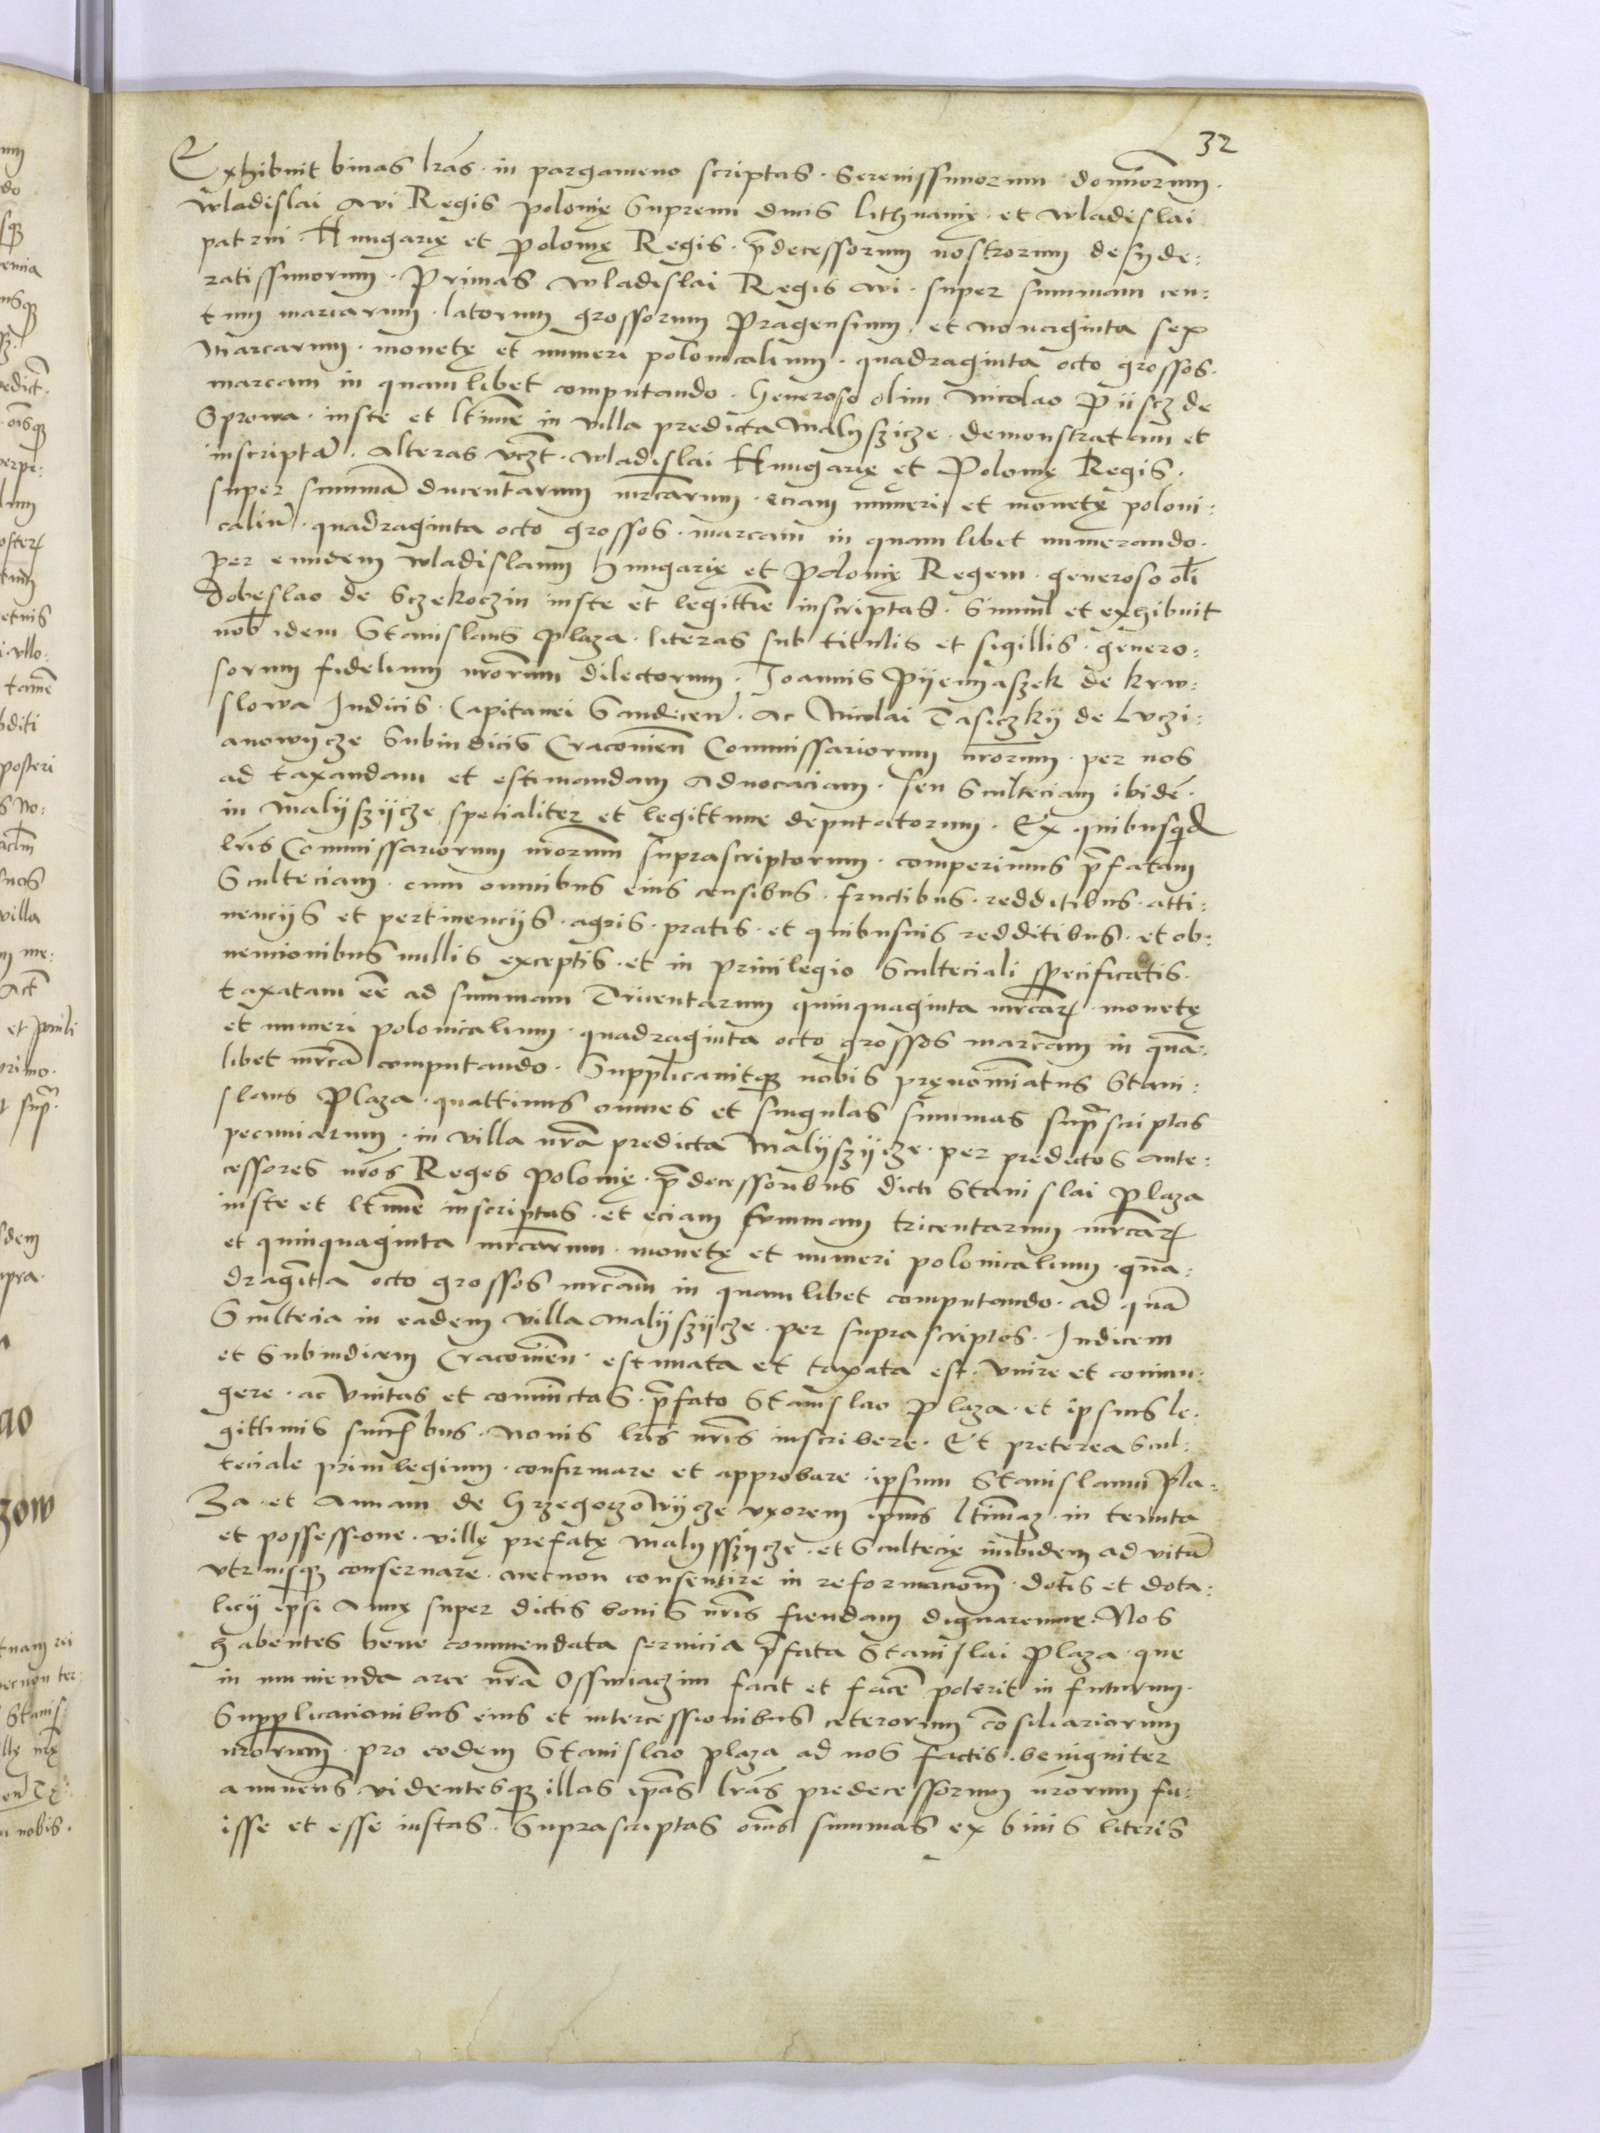 32
Exhibuit binas lrās · in pargameno scriptas · Serenissimorum dominorum ·
Wladislai Avi Regis polonię Supremi ducis lithuanię · et wladislai
patrui · Hungarię et Polonię Regis · p̄decessorum nostrorum desyde:
ratissimorum · Primas wladislai Regis avi · super summam cen:
tum marcarum · latorum grossorum Pragensium · et nonaginta sex
Marcarum · monetę et numeri polonicalium · quadraginta octo grossos ·
marcam in quamlibet computando · Generoso olim Nicolao Piiscz de
Sprowa · iuste et ltīme in villa predicta Malyszicze · demonstratam et
inscriptā · Alteras vczt · wladislai Hungarię et Polonię Regis ·
super summā ducentarum mrcarum · eciam numeri et monetę poloni:
caliū · quadraginta octo grossos · marcam in quamlibet numerando ·
per eundem wladislaum Hungarię et Polonię Regem · generoso oli
Dobeslao de Sczekoczin iuste et legittīe inscriptas · Simul et exhibuit
nob idem Stanislaus Plaza · literas sub titulis et sigillis · genero:
sorum fidelium nrorum dilectorum · Joannis Pyenyaszek de krw:
slowa Judicis · Capitanei Sandecen̄ · Ac Nicolai Jasiczkÿ de Lvczi:
anowÿcze Subiudicis Cracouien̄ Commissariorum nrorum · per nos
ad taxandam et estimandam Aduocaciam · seu Scultecia͞m ibidē ·
in Malÿszÿcze specialiter et legittime deputatorum · Ex quibusq̄d
lrīs Commissariorum nrorum suprascriptorum · comperimus p̄fatam
Sculteciam · cum omnibus eius censibus · fructibus · redditibus · atti:
nencijs et pertinencijs · agris · pratis · et quibusuis redditibus · et ob:
uencionibus nullis exceptis · et in priuilegio Sculteciali specificatis ·
taxatam eē ad summam Tricentarum quinquaginta mrcar · monetę
et numeri polonicalium · quadraginta octo grossos marcam in quā:
libet mrcā computando · Supplicauitq nobis pręnominatus Stani:
slaus Plaza · quattinus omnes et singulas summas sup̄scriptas
pecuniarum · in villa nrā predicta Malÿszÿcze · per predictos ante:
cessores nrōs Reges Polonię · p̄decessoribus dicti Stanislai Plaza
iuste et ltīme inscriptas · et eciam summam tricentarum mrcar
et quinquaginta mrcarum · monetę et numeri polonicalium · qua:
draginta octo grossos mrcam in quamlibet computando · ad quā
Scultecia in eadem villa Malÿszÿcze · per suprascriptos · Judicem
et Subiudicem Cracouien̄ · estimata et taxata est · vnire et coniun:
gere · ac vnitas et coniunctas · p̄fato Stanislao Plaza · et ipsius le:
gittimis succ͞bus · Nouis lrīs nrīs inscribere · Et preterea Scul:
teciale priuilegium · confirmare et approbare · ipsum Stanislaum Pla:
za · et Annam de Grzegorzowÿcze vxorem ipius ltimaz · in tenuta
et possessione · villę prefatę Malÿsszÿcze · et Scultecię inibidem ad vitā
vtriusq conseruare · necnon consentire in reformacionem · dotis et dota:
licij ipsi Annę super dictis bonis nrīs fiendam dignaremur · Nos
habentes bene commendata seruicia p̄fata Stanislai Plaza · que
in munienda arce nrā Osswiaczim facit et facē poterit in futurum ·
Supplicacionibus eius et intercessionibus ceterorum cōsiliariorum
nrorum · pro eodem Stanislao plaza ad nos factis · benigniter
annuens videntesq illas ipas lrās predecessorum nrorum fu:
isse et esse iustas · Suprascriptas omēs summas ex binis literis